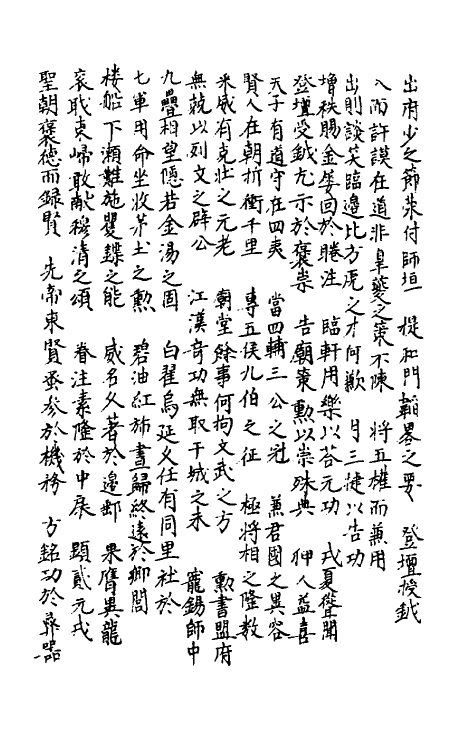 出府少之節朱付師垣　提和門韜畧之要　登壇授鉞
入而訏謨在道非皐夔之策不陳　將五權而兼用
出則談笑臨邊比方虎之才何歉　月三捷以告功
增秩賜金晏回於睠注　臨軒用樂以荅元功　戎夏聳聞
登壇受鉞尤示於褒崇　告廟策勲以崇殊典　神人益喜
天子有道守在四夷　當四輔三公之冠　兼君國之異容
賢人在朝折衝千里　專五侯九伯之征　極將相之隆数
米威有克壯之元老　廟堂餘事何拘文武之方　勲書盟府
無兢以刻文之辟公　江漢竒功無取干城之未　寵錫師中
九疊相望隱若金湯之固　白翟烏延乆任有同里社於
七軍用命坐收茅土之勲　碧油紅斾晝歸終遠於鄉閭
楼船下瀬難施矍鑠之能　威名乆著於邉鄙　果膺異寵
衮職東歸敢献穆清之頌　眷注素隆於中扆　顕貳元戎
聖朝褒德而録賢　先帝東賢丞参於機務　方銘功於彛器